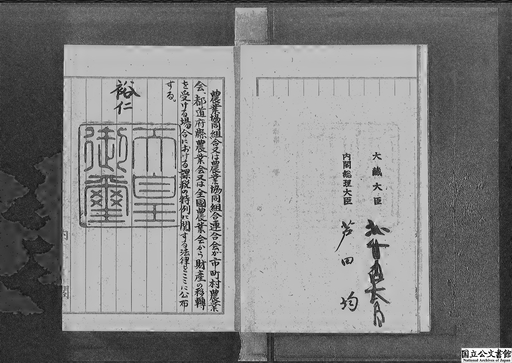 大藏大臣
内閣総理大臣
芦田均
農業協同組合又は農業協同組合連合会が市町村農業
会、都道府縣農業会又は全國農業会から財産の移轉
を受ける場合における課税の特例に関する法律をここに公布
する。
裕仁
天皇
御璽
国立公文書館
National Archives of Japan